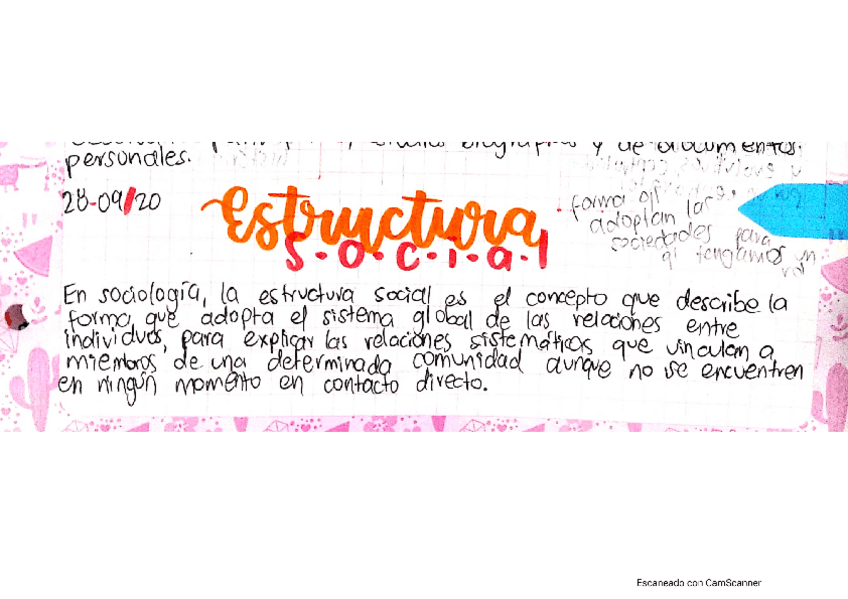 personales.
28-09/20
Estructura
S.o.c.i.a.l
forma q'
adoptan las
sociedades para
q' tengamos un
rol
En sociología, la estructura social es el concepto que describe la
forma que adopta el sistema global de las relaciones entre
individuos, para explicar las relaciones sistemáticas que vinculan a
miembros de una determinada comunidad aunque no se encuentren
en ningún momento en contacto directo.
Escaneado con CamScanner